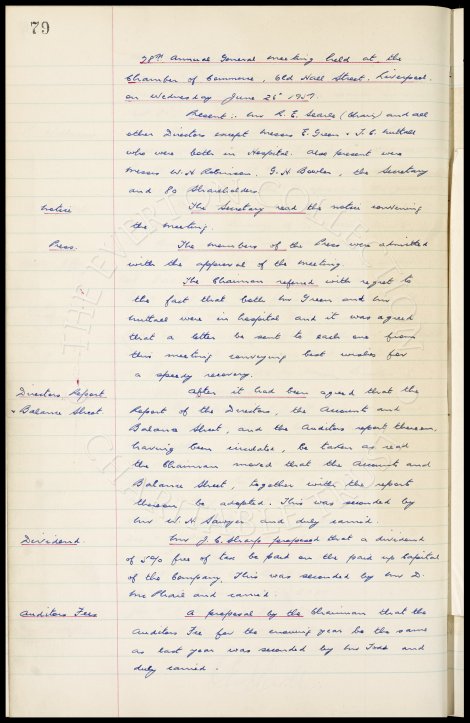 79
78th Annual General meeting held at the
Chamber of Commerce, Old Hall Street, Liverpool,
on Wednesday June 26th 1957.
Present:- Mr R. E. Searle (Chair) and all
other Directors except Messrs E. Green & T. C. Nuttall
who were both in Hospital. Also present were
Messrs W. H. Robinson, G. H. Bowler, the Secretary
and 80 Shareholders.
Notice
The Secretary read the notice convening
the meeting.
Press.
The members of the Press were admitted
with the approval of the meeting.
The Chairman referred with regret to
the fact that both Mr Green and Mr
Nuttall were in hospital and it was agreed
that a letter be sent to each one from
this meeting conveying best wishes for
a speedy recovery.
Directors Report
& Balance Sheet
After it had been agreed that the
Report of the Directors, the Account and
Balance Sheet, and the Auditors report thereon,
having been circulated, be taken as read
the Chairman moved that the Accounts and
Balance Sheet, together with the report
thereon, be adopted. This was seconded by
Mr W. H. Sawyer and duly carried.
Dividend
Mr J. C. Sharp proposed that a dividend
of 5% free of tax be paid on the paid up Capital
of the Company. This was seconded by Mr D.
McPhail and carried.
Auditors Fees
A proposal by the Chairman that the
Auditors Fee for the ensuing year be the same
as last year was seconded by Mr Todd and
duly carried.
THE EVERTON COLLECTION
CHARITABLE TRUST